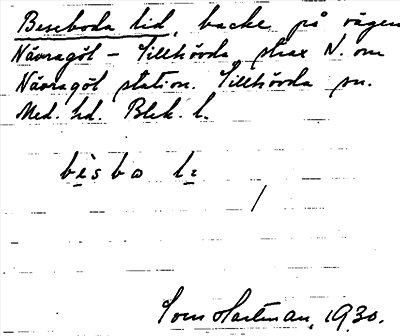 Beseboda lid, backe på vägen
Nävragöl – Tillhövda strax N. om
Nävragöl station. Tillhövda sn.
Med. hd. Blek. l.
bèsbo li
Sven Hartman, 1930.